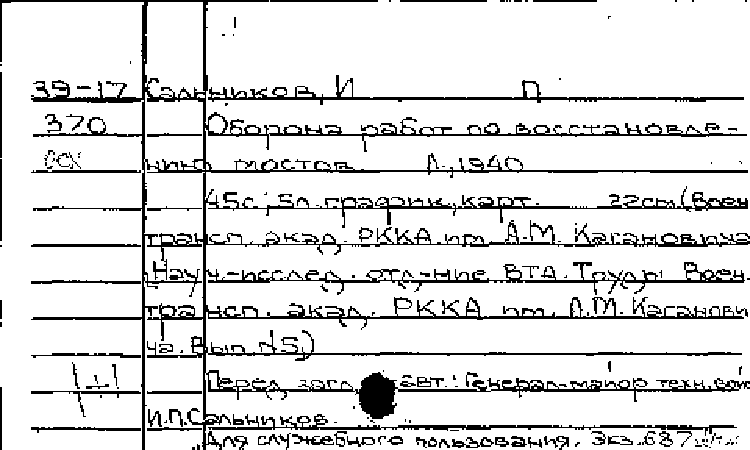 39-17 Сальников, И П
370 Оборона работ по восстановле-
нию мостов. Л., 1940
45с.; 5л. график., карт. 22см. (Воен
трансп. акад. РККА им. Л.М. Кагановича
Науч.-исслед. отд-ние ВТА. Труды Воен.
трансп. акад. РККА им. Л.М. Каганови
ча. Вып. №5)
Перед загл. авт.: Генерал-майор техн. вой
И.П. Сальников.
Для служебного пользования. Экз. 637